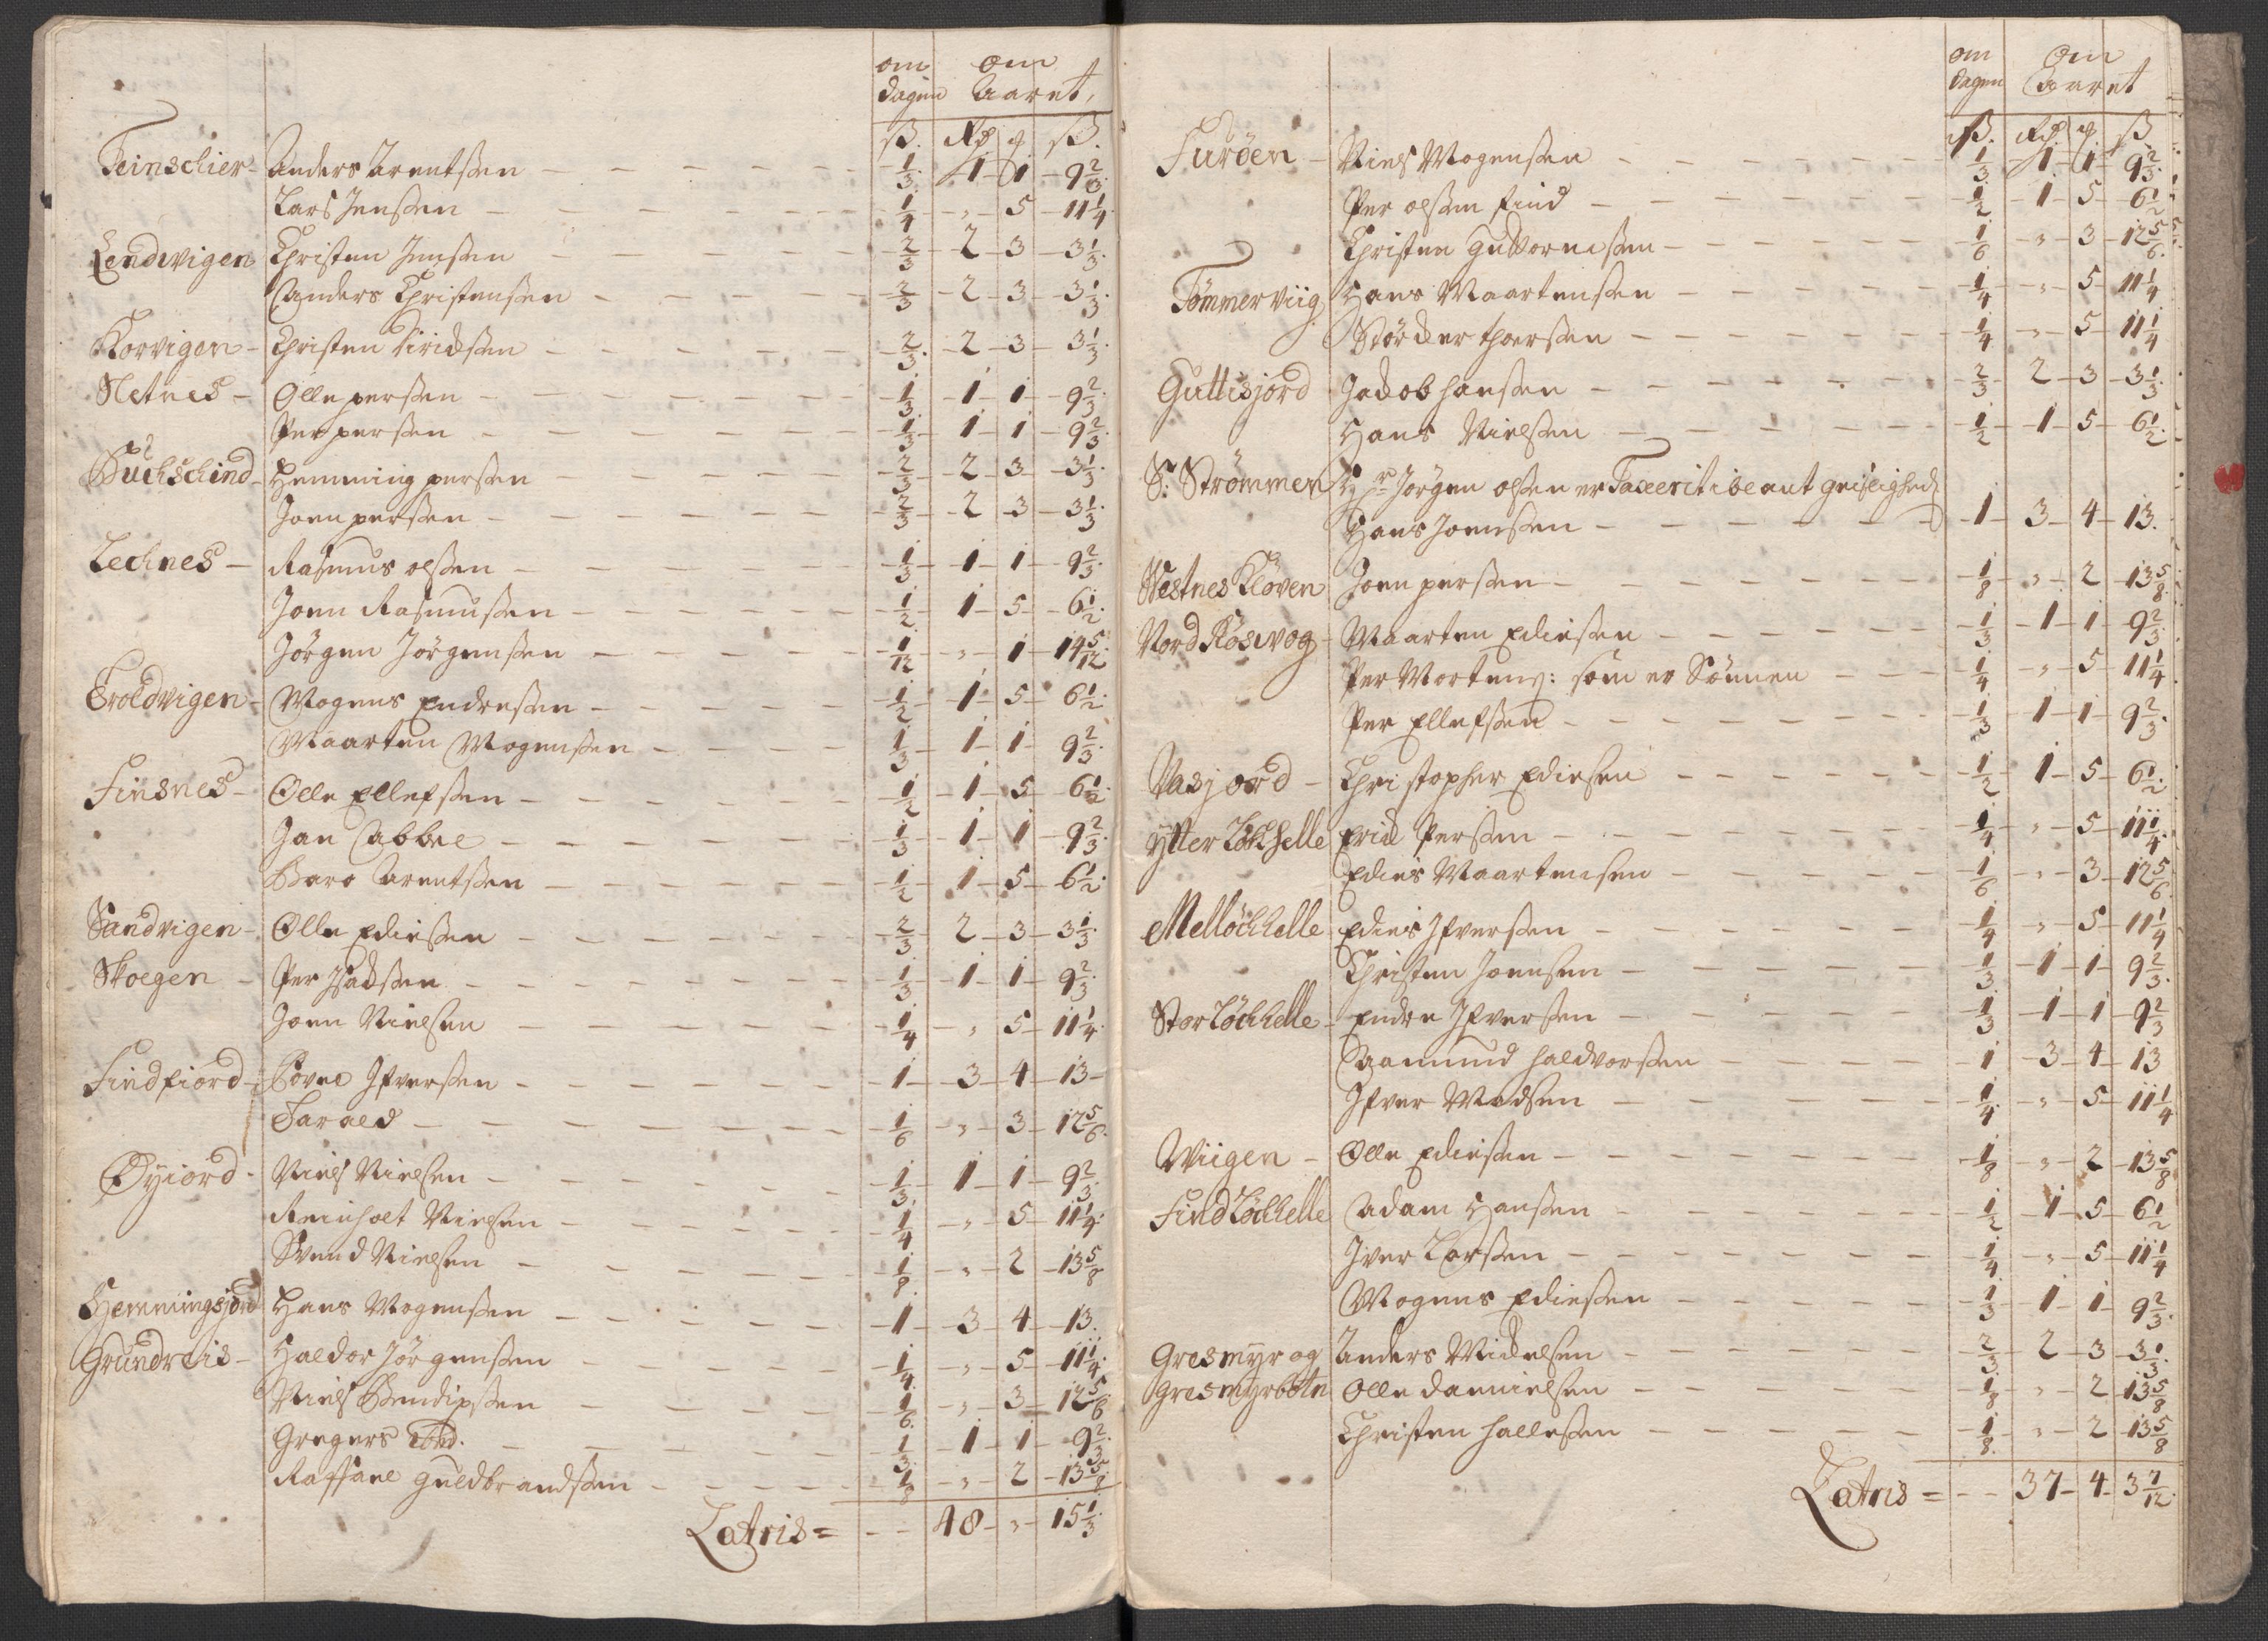 om om
dagen Aaret,
ß. Rd ɋ ß.
Teinschier - Anders Arentsen - 1/3 - 1 - 1 - 9 2/3
Lars Jenßen - 1/4 - „ - 5 - 11 1/4
Lendvigen Christen Jenßen - 2/3 - 2 - 3 - 3 1/3
Anders Christensen - 2/3 - 2 - 3 - 3 1/3
Korvigen - Christen - 2/3 - 2 - 3 - 3 1/3
Netnes - Olle perßen - 1/3 - 1 - 1 - 9 2/3
Per perßen - 1/3 - 1 - 1 - 9 2/3
Buchschind - Hemming perßen - 2/3 - 2 - 3 - 3 1/3
Joen perßen - 2/3 - 2 - 3 - 3 1/3
Lechnes - Rasmus olßen - 1/3 - 1 - 1 - 9 2/3
Joen Rasmußen - 1/2 - 1 - 5 - 6 1/2
Jörgen Jörgenßen - 1/12 - „ - 1 - 14 5/12
Troldvigen - Mogens Endreßen - 1/2 - 1 - 5 - 6 1/2
Maarten Mogenßen - 1/3 - 1 - 1 - 9 2/3
Finsnes - Olle Ellefßen - 1/2 - 1 - 5 - 6 1/2
Jan Cabbee - 1/3 - 1 - 1 - 9 2/3
Baro Arentßen - 1/2 - 1 - 5 - 6 1/2
Sandvigen - Olle Edießen - 2/3 - 2 - 3 - 3 1/3
Skoegen - Per Isacßen - 1/3 - 1 - 1 - 9 2/3
Joen Nielsen - 1/4 - „ - 5 - 11 1/4
Findfiord - Povel Ifverßen - 1 - 3 - 4 - 13 -
Tarald - 1/6 - „ - 3 - 12 5/6
Øyiord - Niels Nielsen - 1/3 - 1 - 1 - 9 2/3
Reinholt Nielsen - 1/4 - „ - 5 - 11 1/4
Svend Nielsen - 1/8 - „ - 2 - 13 5/8
Hemmingsjord Hans Mogenßen - 1 - 3 - 4 - 13.
Grundreis - Haldor Jörgenßen - 1/4 - „ - 5 - 11 1/4
Niels Bendixßen - 1/6 - „ - 3 - 12 5/6
Gregers - 1/3 - 1 - 1 - 9 2/3
Raffael Guldbrandßen - 1/8 - „ - 2 - 13 5/8
Latris = - - 48 - „ - 15 1/3
om om
dagen Aaret
ß. Rd ɋ ß
Furöen - Niels Mogensen - 1/3 - 1 - 1 - 9 2/3
Per olßen find - 1/2 - 1 - 5 - 6 1/2
Christen Guttormßen - 1/6 - „ - 3 - 12 5/6
Tömmerviig Hans Maartenßen - 1/4 - „ - 5 - 11 1/4
Thoerßen - 1/4 - „ - 5 - 11 1/4
Guttisjord Jacob Hansen - 2/3 - 2 - 3 - 3 1/3
Hans Nielßen - 1/2 - 1 - 5 - 6 1/2
S: Strömmen Hr Jörgen olßen er Taxerit iblant geistlighed
Hans Joenßen - 1 - 3 - 4 - 13.
Westnes Klöven Joen perßen - 1/8 - „ - 2 - 13 5/8
Nord Röswog - Maarten Edießen - 1/3 - 1 - 1 - 9 2/3
Per Mortens: som er Sönnen - 1/4 - „ - 5 - 11 1/4
Per Ellefßen - 1/3 - 1 - 1 - 9 2/3
Vasjord - Christopher Edießen - 1/2 - 1 - 5 - 6 1/2
Ytter Löchhelle Erick Perßen - 1/4 - „ - 5 - 11 1/4
Edies Maartensen - 1/6 - „ - 3 - 12 5/6
Mellöchhelle Edies Ifverßen - 1/4 - „ - 5 - 11 1/4
Christen Joensen - 1/3 - 1 - 1 - 9 2/3
Stor Löchhelle - Endre Ifverßen - 1/3 - 1 - 1 - 9 2/3
Aamund Haldvorßen - 1 - 3 - 4 - 13
Ifver Madsen - 1/4 - „ - 5 - 11 1/4
Wiigen - Olle Edießen - 1/8 - „ - 2 - 13 5/8
Find Löchhelle Adam Hanßen - 1/2 - 1 - 5 - 6 1/2
Iver Larßen - 1/4 - „ - 5 - 11 1/4
Mogens Edießen - 1/3 - 1 - 1 - 9 2/3
Gresmyr og Anders Michelsen - 2/3 - 2 - 3 - 3 1/3
Gresmyrbotn Olle Danielsen - 1/8 - „ - 2 - 13 5/8
Christen Halleßen - 1/8 - „ - 2 - 13 5/8
Latris = - - 37 - 4 - 3 7/12